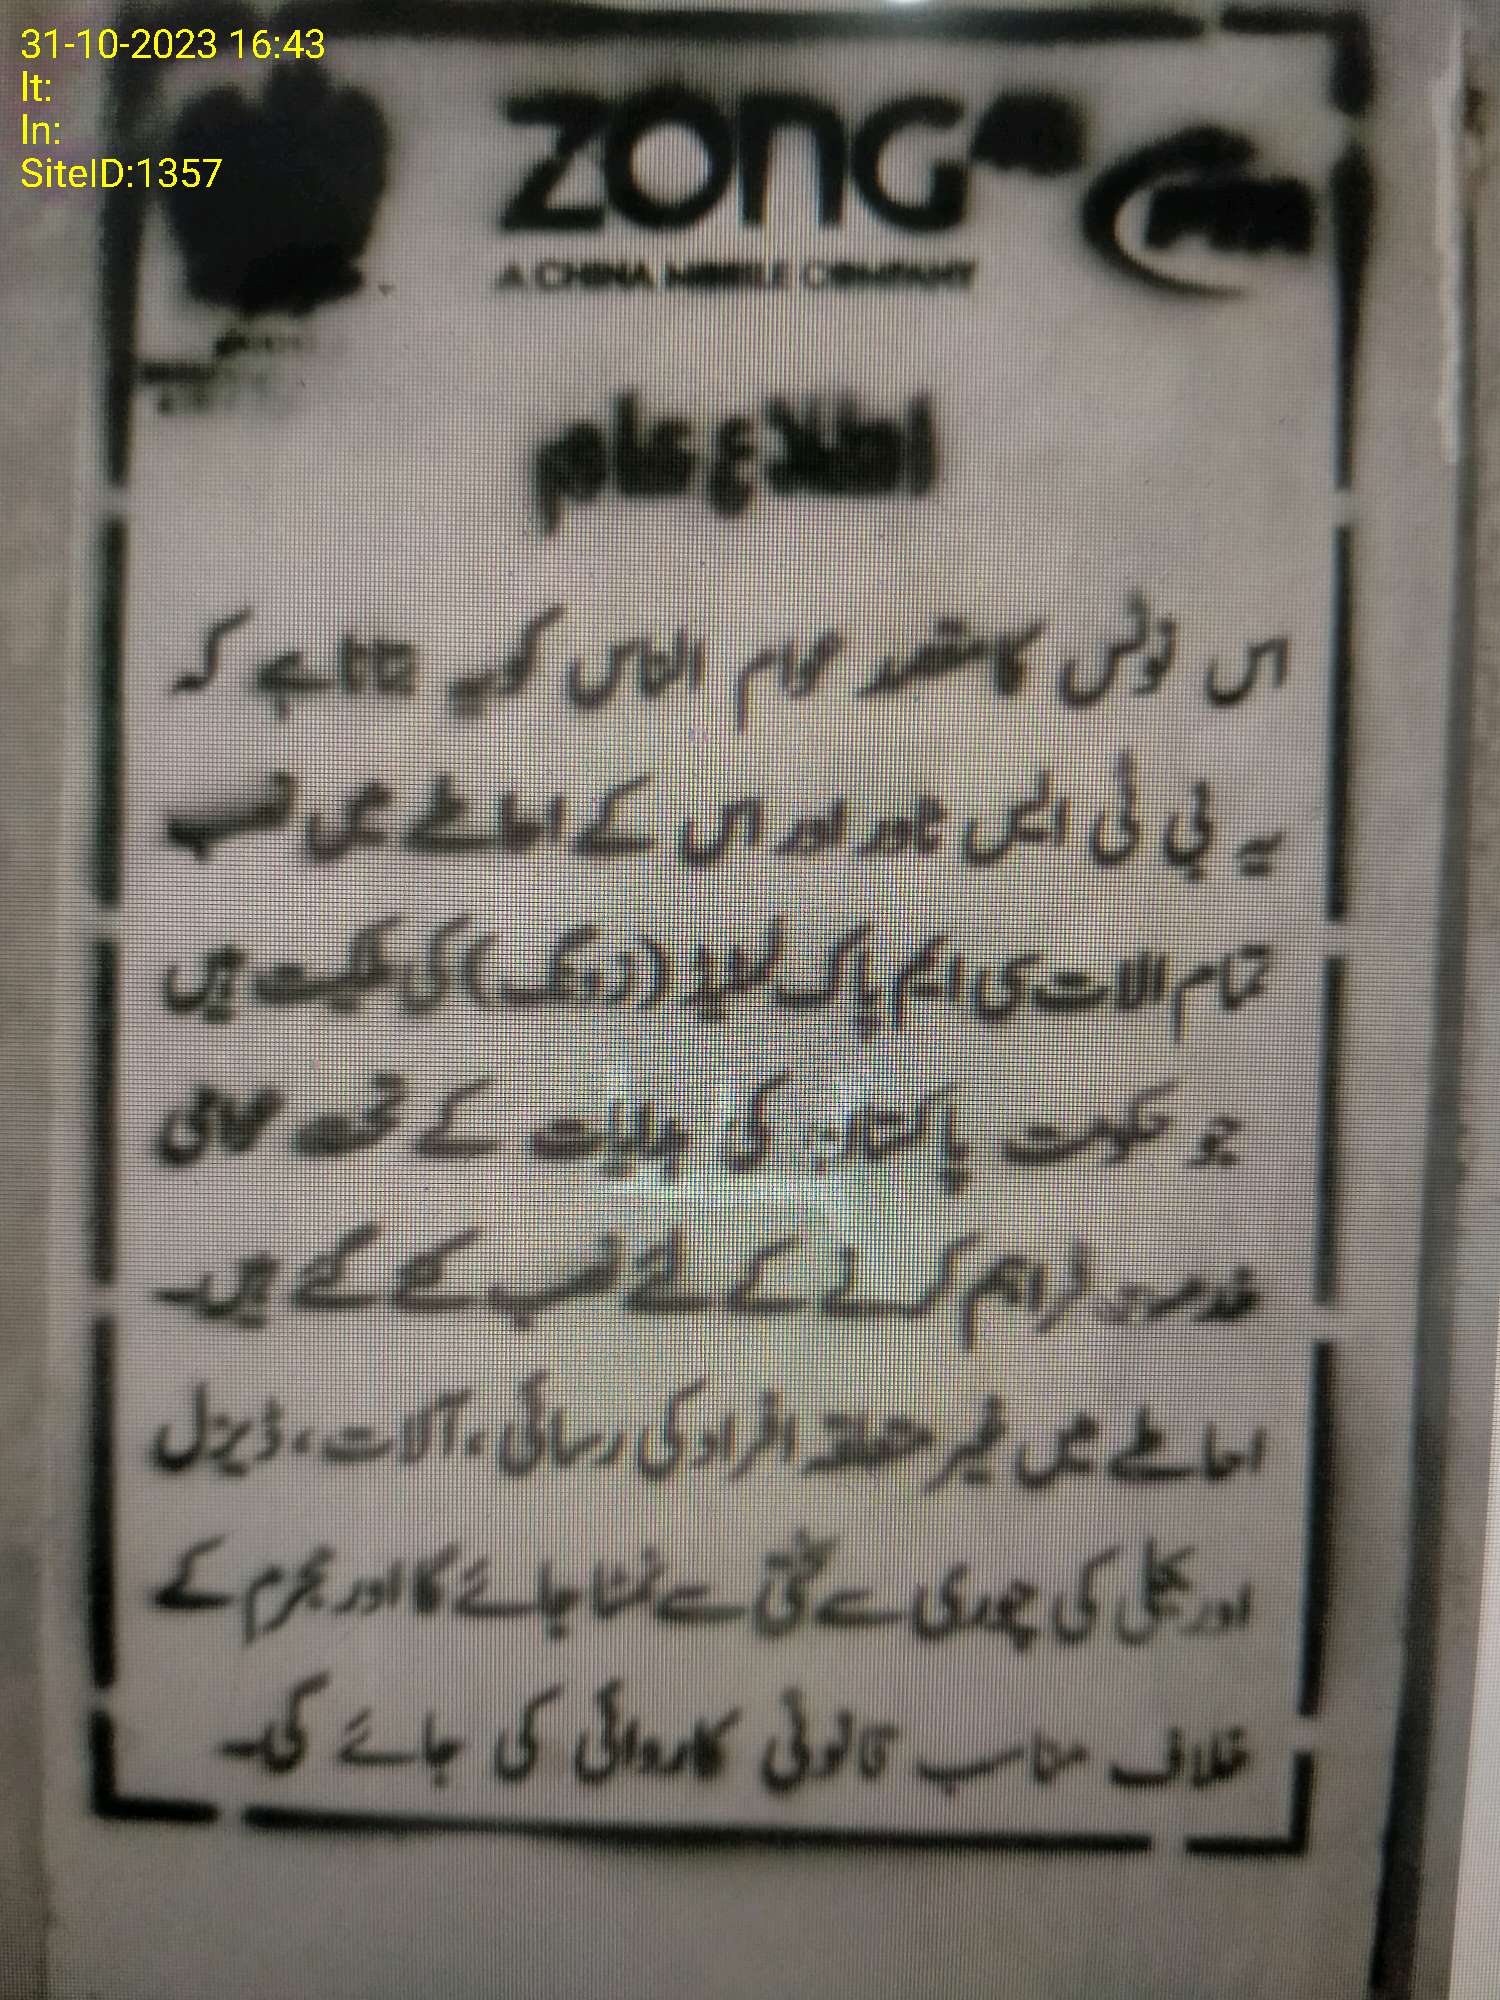 31-10-2023 16:43
lt:
ln:
SiteID:1357
zong
A CHINA MOBILE COMPANY
PTA
اطلاع عام
اس نوٹس کا مقصد عوام الناس کو یہ بتانا ہے کہ
یہ بی ٹی ایس ٹاور اور اس کے احاطے میں نصب
تمام الات سی ایم پاک لمیٹڈ (زونگ) کی ملکیت ہیں
جو حکومت پاکستان کی ہدایات کے تحت
خدمت فراہم کرنے کے لئے نصب کئے گئے ہیں۔
احاطے میں غیر متعلقہ افراد کی رسائی، آلات، ڈیزل
اور بجلی کی چوری سے سختی سے نمٹا جائے گا اور مجرم کے
خلاف مناسب قانونی کاروائی کی جائے گی۔